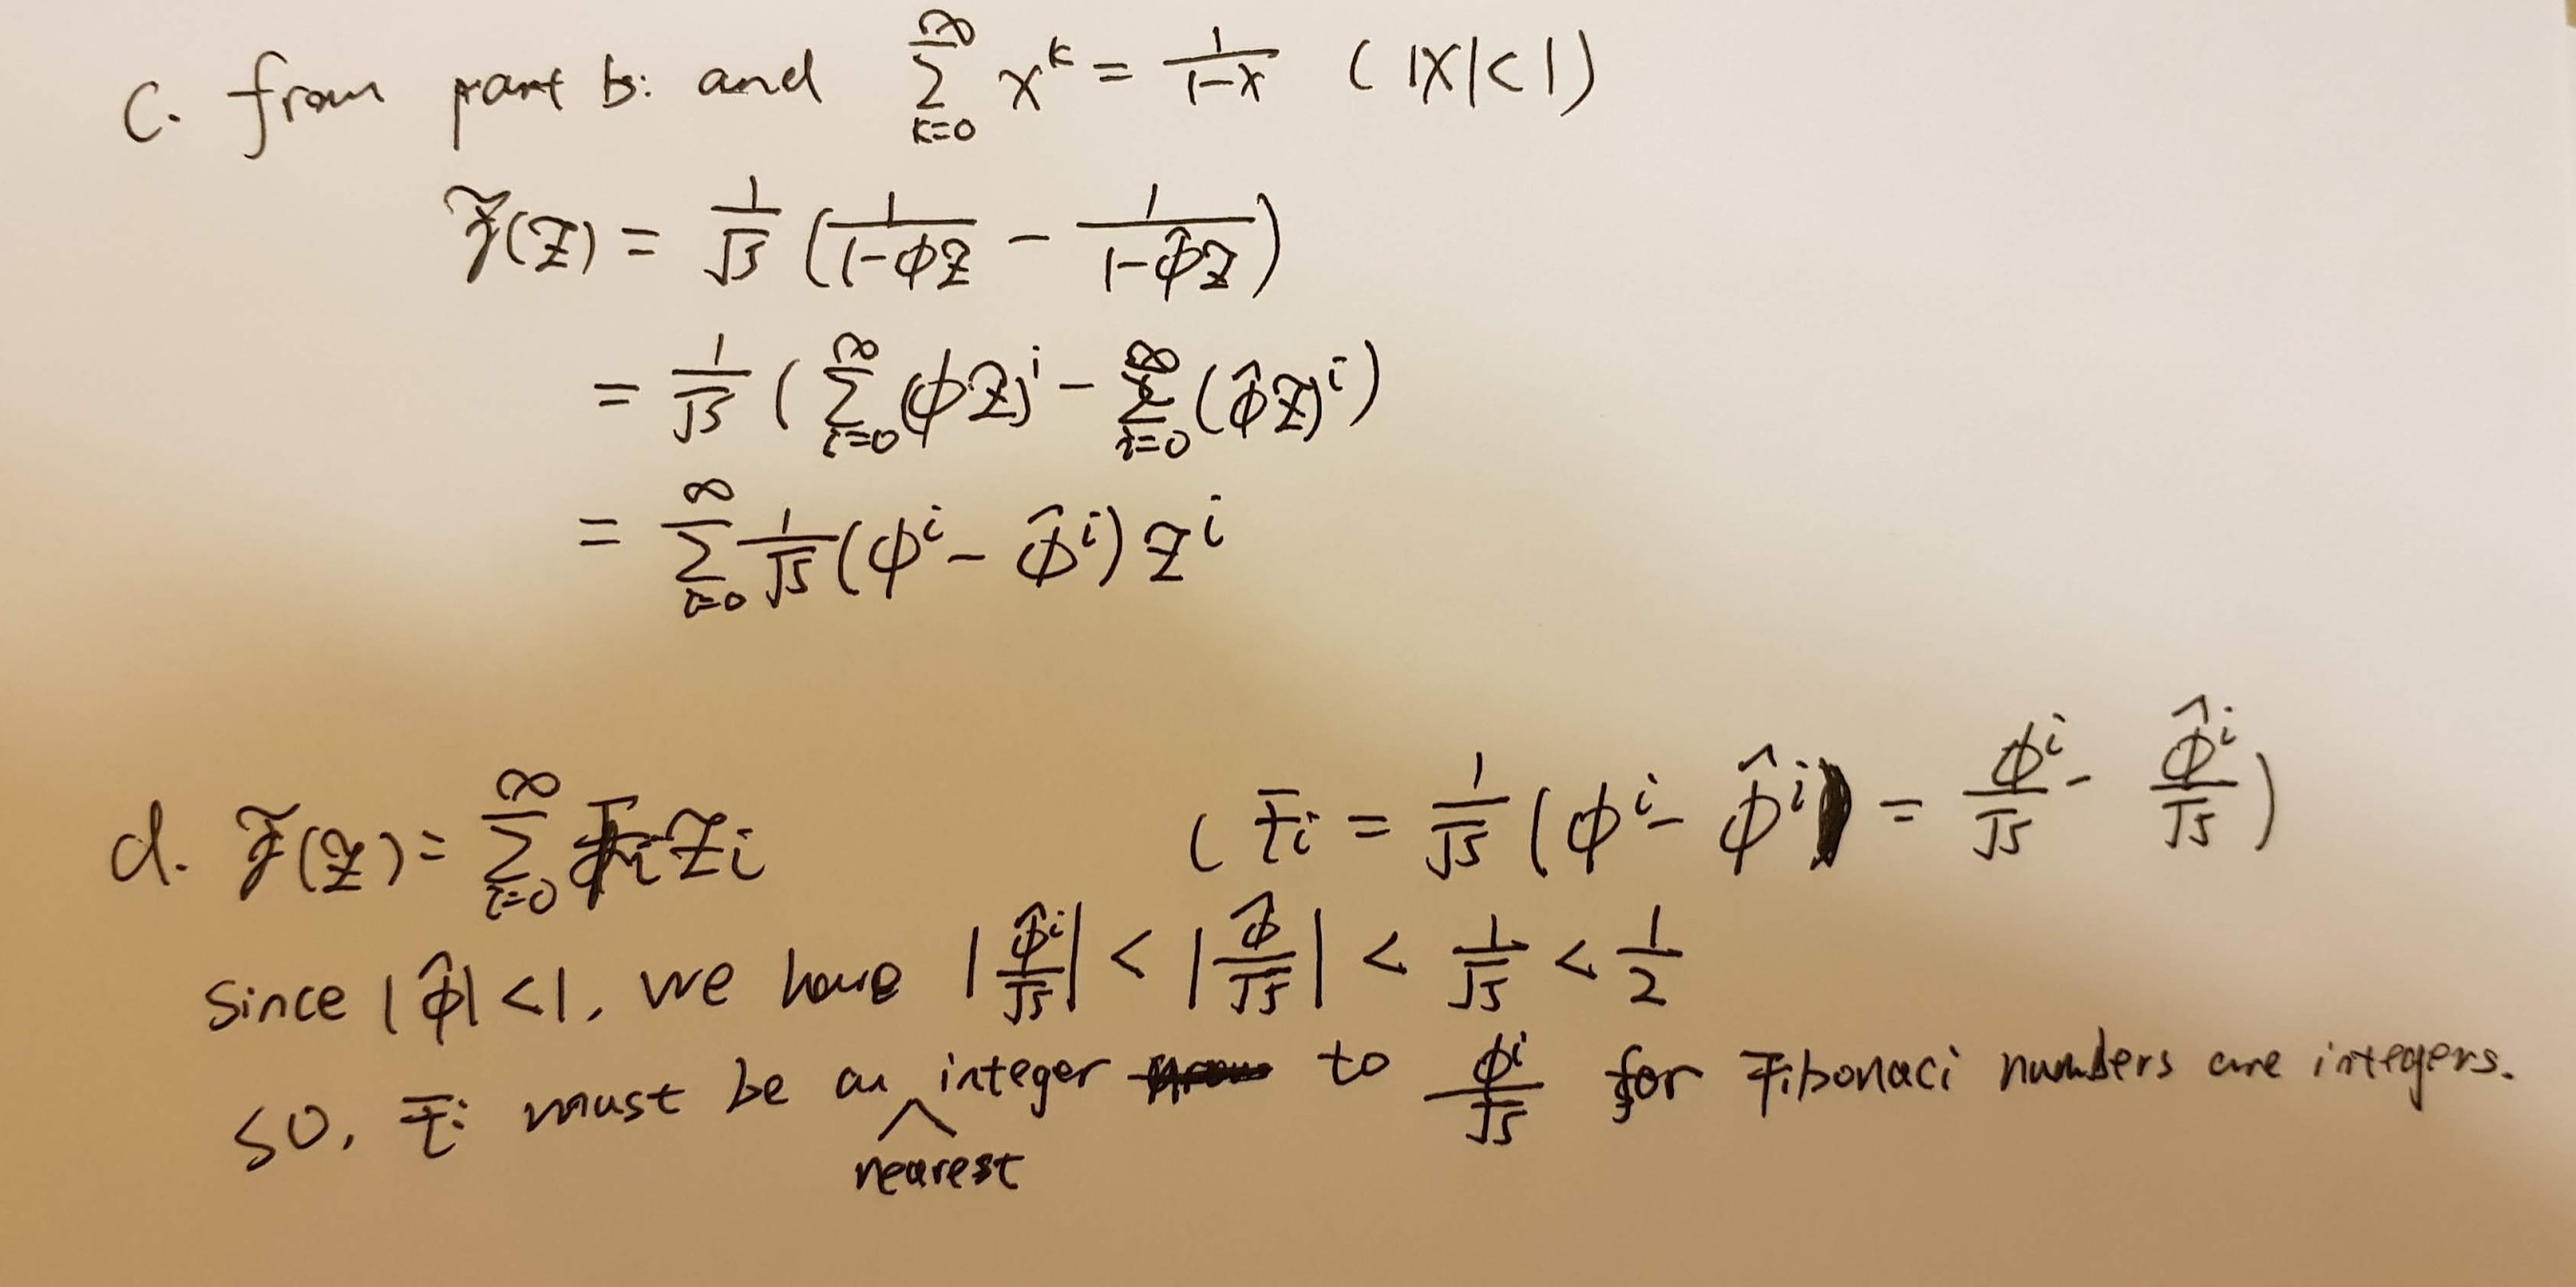 c. from part b: and \sum_{k=0}^{∞} x^k = \frac{1}{1-x} (|x|<1)
𝓕(z) = \frac{1}{√5} (\frac{1}{1-ϕz} - \frac{1}{1-\hat{ϕ}z})
= \frac{1}{√5} (\sum_{i=0}^{∞} (ϕz)^i - \sum_{i=0}^{∞} (\hat{ϕ}z)^i)
= \sum_{i=0}^{∞} \frac{1}{√5} (ϕ^i - \hat{ϕ}^i) z^i
d. 𝓕(z) = \sum_{i=0}^{∞} F_i z^i (F_i = \frac{1}{√5} (ϕ^i - \hat{ϕ}^i) = \frac{ϕ^i}{√5} - \frac{\hat{ϕ}^i}{√5})
since |\hat{ϕ}| < 1, we have |\frac{\hat{ϕ}^i}{√5}| < |\frac{\hat{ϕ}}{√5}| < \frac{1}{√5} < \frac{1}{2}
so, F_i must be an integer to \frac{ϕ^i}{√5} for Fibonaci numbers are integers.
nearest